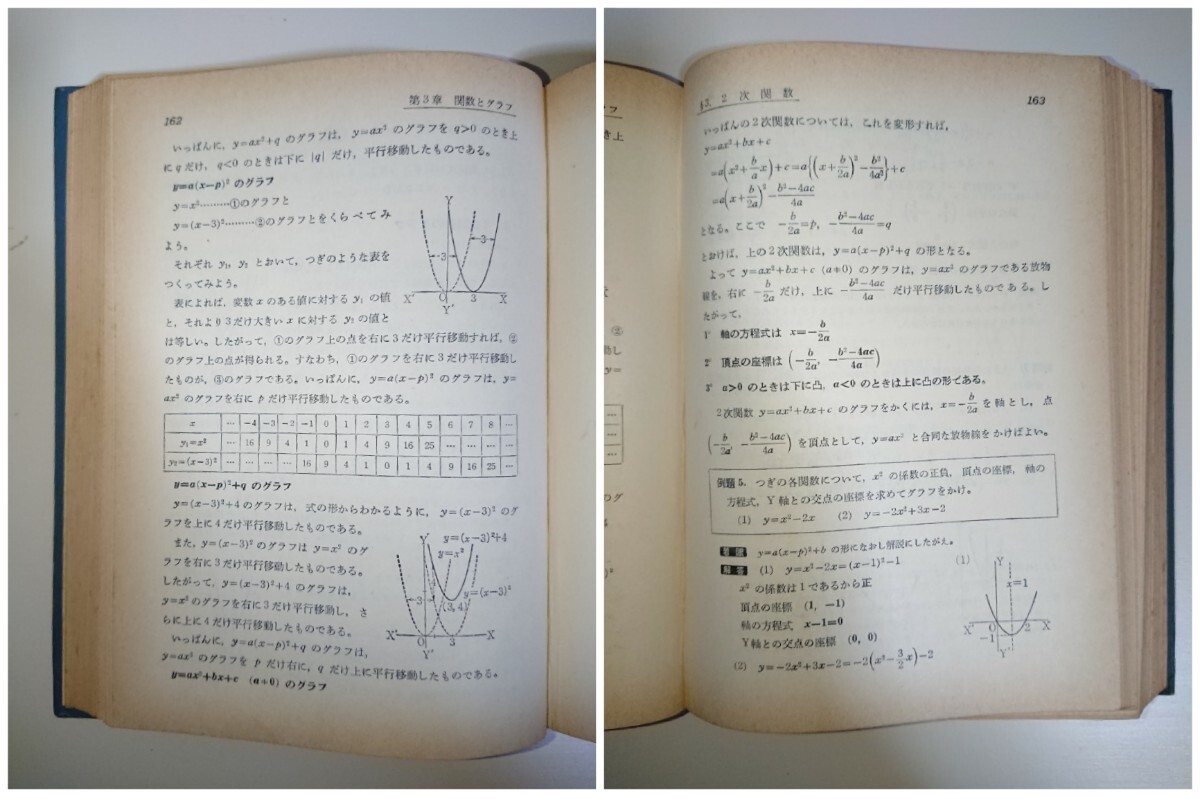 第3章 関数とグラフ
162
いっぱんに, y=ax²+q のグラフは, y=ax² のグラフを q>0 のとき上
に q だけ, q<0 のときは下に |q| だけ, 平行移動したものである。
y=a(x-p)² のグラフ
y=x²………①のグラフと
y=(x-3)²………②のグラフとをくらべてみ
よう。
それぞれ y₁, y₂ とおいて, つぎのような表を
つくってみよう。
表によれば, 変数 x のある値に対する y₁ の値
と, それより3だけ大きい x に対する y₂ の値と
は等しい。したがって, ①のグラフ上の点を右に3だけ平行移動すれば, ②
のグラフ上の点が得られる。すなわち, ①のグラフを右に3だけ平行移動し
たものが, ⑤のグラフである。いっぱんに, y=a(x-p)² のグラフは, y=
ax² のグラフを右に p だけ平行移動したものである。
Y
-3
3
X' O 3 X
Y'
x … -4 -3 -2 -1 0 1 2 3 4 5 6 7 8 …
y₁=x² … 16 9 4 1 0 1 4 9 16 25 … … … …
y₂=(x-3)² … … … … 16 9 4 1 0 1 4 9 16 25 …
y=a(x-p)²+q のグラフ
y=(x-3)²+4 のグラフは, 式の形からわかるように, y=(x-3)² のグ
ラフを上に4だけ平行移動したものである。
また, y=(x-3)² のグラフは y=x² のグ
ラフを右に3だけ平行移動したものである。
したがって, y=(x-3)²+4 のグラフは,
y=x² のグラフを右に3だけ平行移動し, さ
らに上に4だけ平行移動したものである。
いっぱんに, y=a(x-p)²+q のグラフは,
y=ax² のグラフを p だけ右に, q だけ上に平行移動したものである。
y=ax²+bx+c (a≠0) のグラフ
Y y=(x-3)²+4
y=x²
y=(x-3)²
3 (3,4)
X' O 3 X
Y'
§3. 2 次 関 数
163
いっぱんの2次関数については, これを変形すれば,
y=ax²+bx+c
=a(x²+b/a x)+c=a{(x+b/2a)²-b²/4a²}+c
=a(x+b/2a)²-b²-4ac/4a
となる。ここで -b/2a=p, -b²-4ac/4a=q
とおけば, 上の2次関数は, y=a(x-p)²+q の形となる。
よって y=ax²+bx+c (a≠0) のグラフは, y=ax² のグラフである放物
線を, 右に -b/2a だけ, 上に -b²-4ac/4a だけ平行移動したものである。し
たがって,
1° 軸の方程式は x=-b/2a
2° 頂点の座標は (-b/2a, -b²-4ac/4a)
3° a>0 のときは下に凸, a<0 のときは上に凸の形である。
2次関数 y=ax²+bx+c のグラフをかくには, x=-b/2a を軸とし, 点
(-b/2a, -b²-4ac/4a) を頂点として, y=ax² と合同な放物線をかけばよい。
例題 5. つぎの各関数について, x² の係数の正負, 頂点の座標, 軸の
方程式, Y 軸との交点の座標を求めてグラフをかけ。
(1) y=x²-2x (2) y=-2x²+3x-2
y=a(x-p)²+b の形になおし解説にしたがえ。
解答 (1) y=x²-2x=(x-1)²-1
x² の係数は1であるから正
頂点の座標 (1, -1)
軸の方程式 x-1=0
Y軸との交点の座標 (0, 0)
(2) y=-2x²+3x-2=-2(x²-3/2 x)-2
(1) Y
x=1
X' 0 2 X
-1
Y'